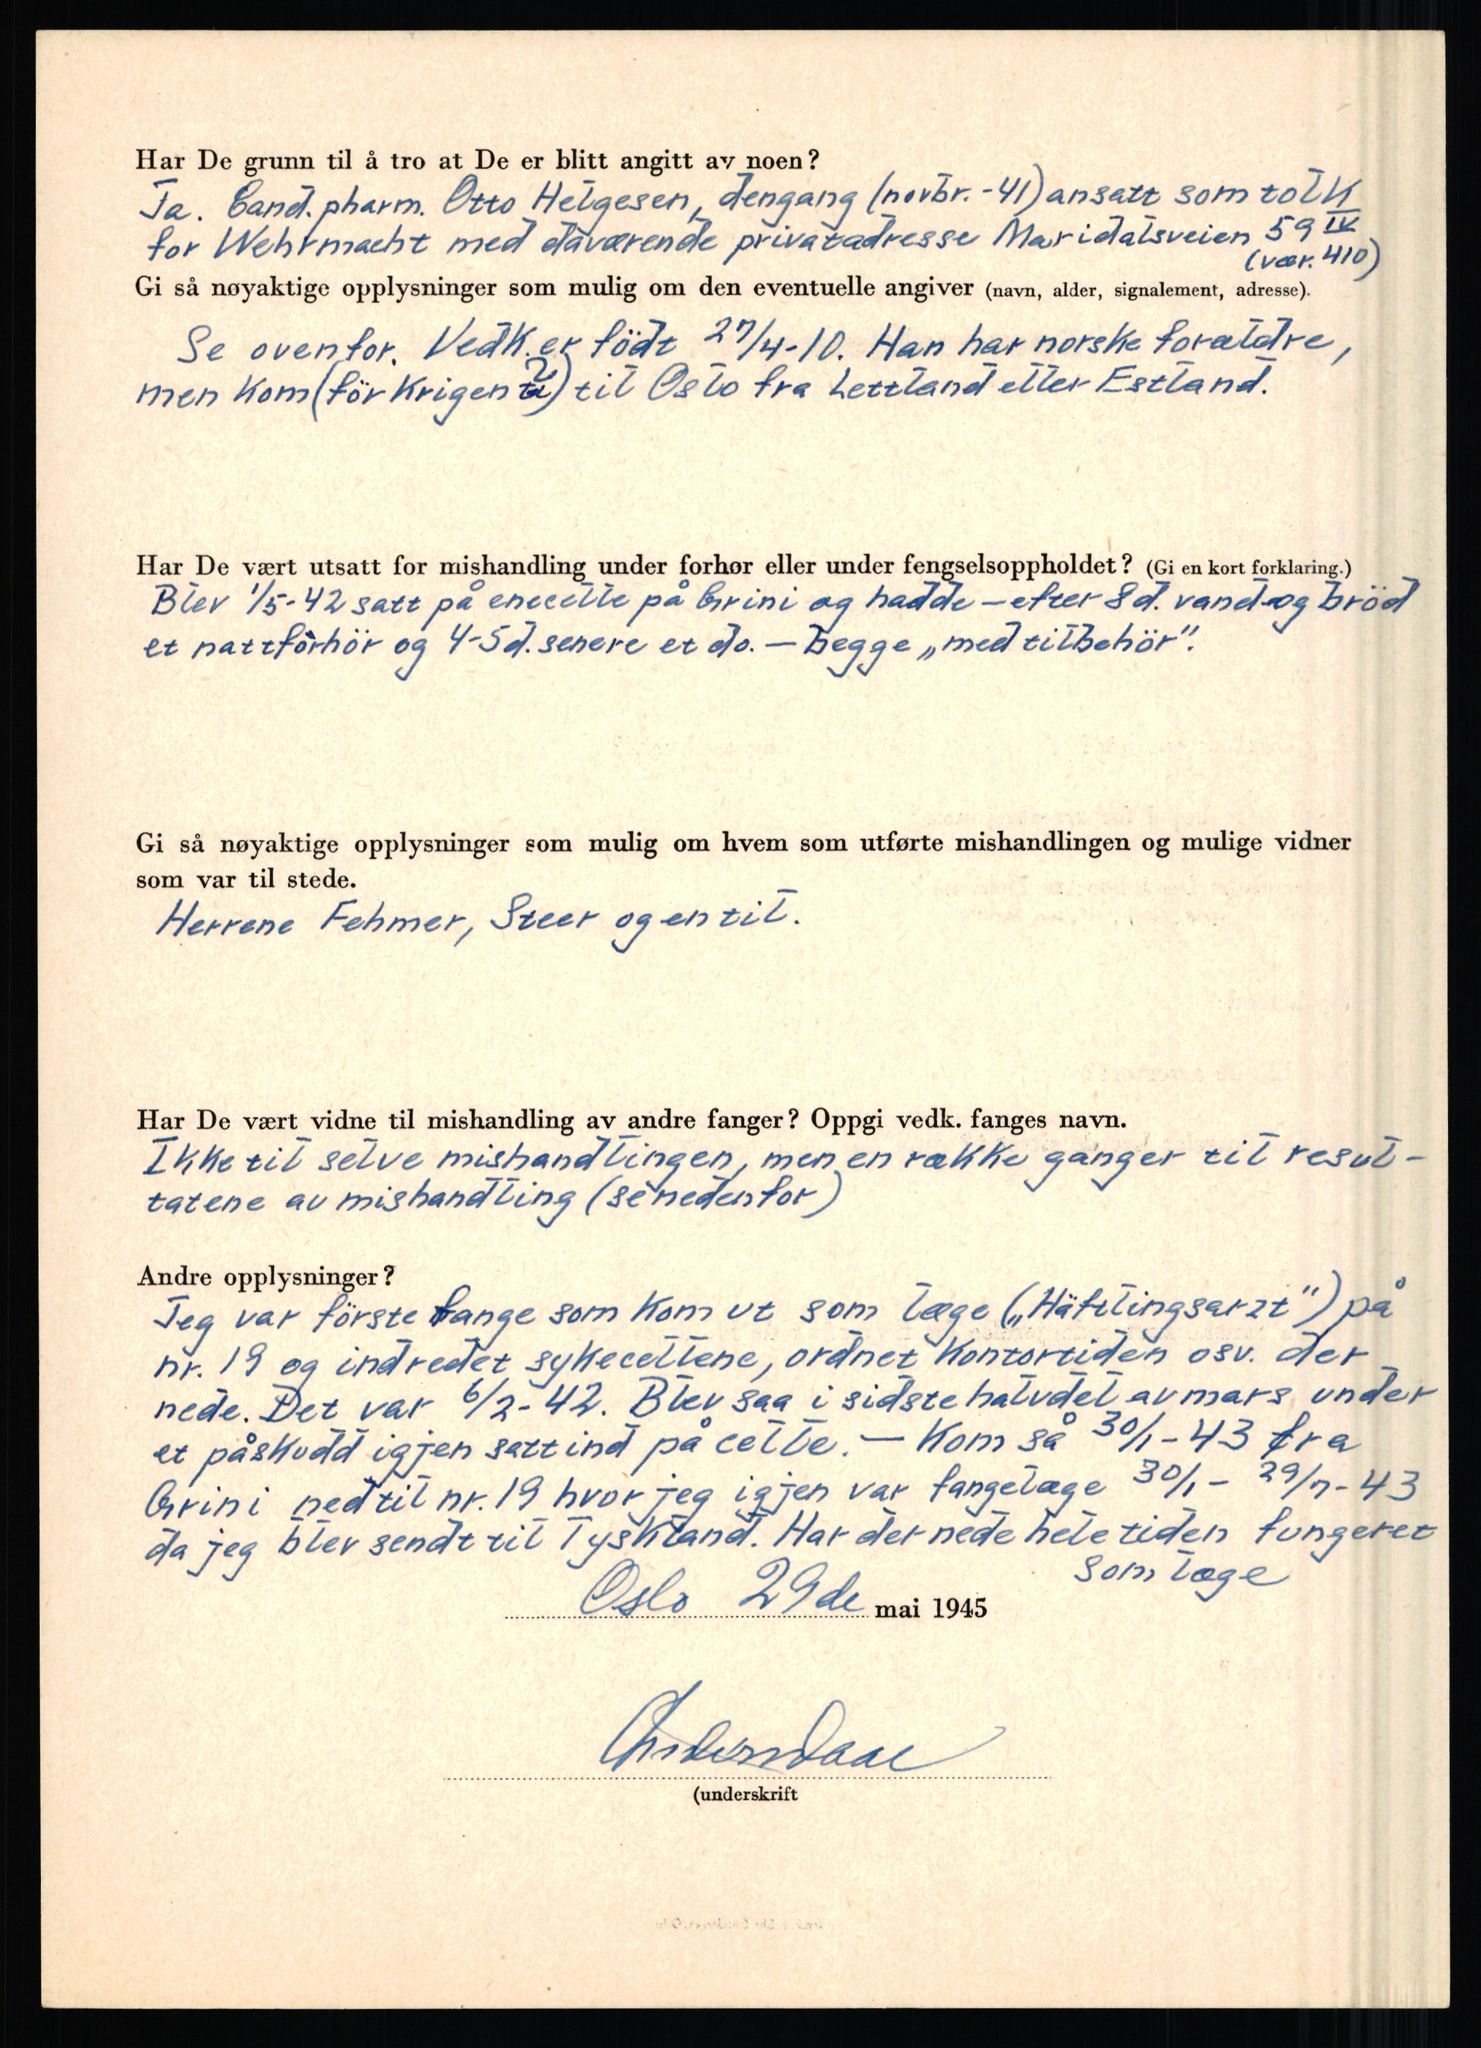 Har De grunn til å tro at De er blitt angitt av noen?
Ja. Cand. pharm. Otto Helgesen, dengang (novbr. -41) ansatt som tolk
for Wehrmacht med daværende privatadresse Maridalsveien 59 IV
(vær. 410)
Gi så nøyaktige opplysninger som mulig om den eventuelle angiver (navn, alder, signalement, adresse).
Se ovenfor. Vedk. er födt 27/4-10. Han har norske forældre,
men kom (för krigen?) til Oslo fra Lettland eller Estland.
Har De vært utsatt for mishandling under forhør eller under fengselsoppholdet? (Gi en kort forklaring.)
Blev 1/5-42 satt på enecelle på Grini og hadde – efter 8 d. vand og bröd
et nattforhör og 4-5 d. senere et do. – begge „med tilbehör".
Gi så nøyaktige opplysninger som mulig om hvem som utførte mishandlingen og mulige vidner
som var til stede.
Herrene Fehmer, Steer og en til.
Har De vært vidne til mishandling av andre fanger? Oppgi vedk. fanges navn.
Ikke til selve mishandlingen, men en række ganger til resul-
tatene av mishandling (se nedenfor)
Andre opplysninger?
Jeg var förste fange som kom ut som læge („Häftlingsarzt") på
nr. 19 og indredet sykecellene, ordnet kontortiden osv. der
nede. Det var 6/2-42. Blev saa i sidste halvdel av mars under
et påskudd igjen satt ind på celle. – Kom så 30/1-43 fra
Grini ned til nr. 19 hvor jeg igjen var fangelæge 30/1 - 29/7-43
da jeg blev sendt til Tyskland. Har der nede hele tiden fungeret
som læge
Oslo 29de mai 1945
(underskrift